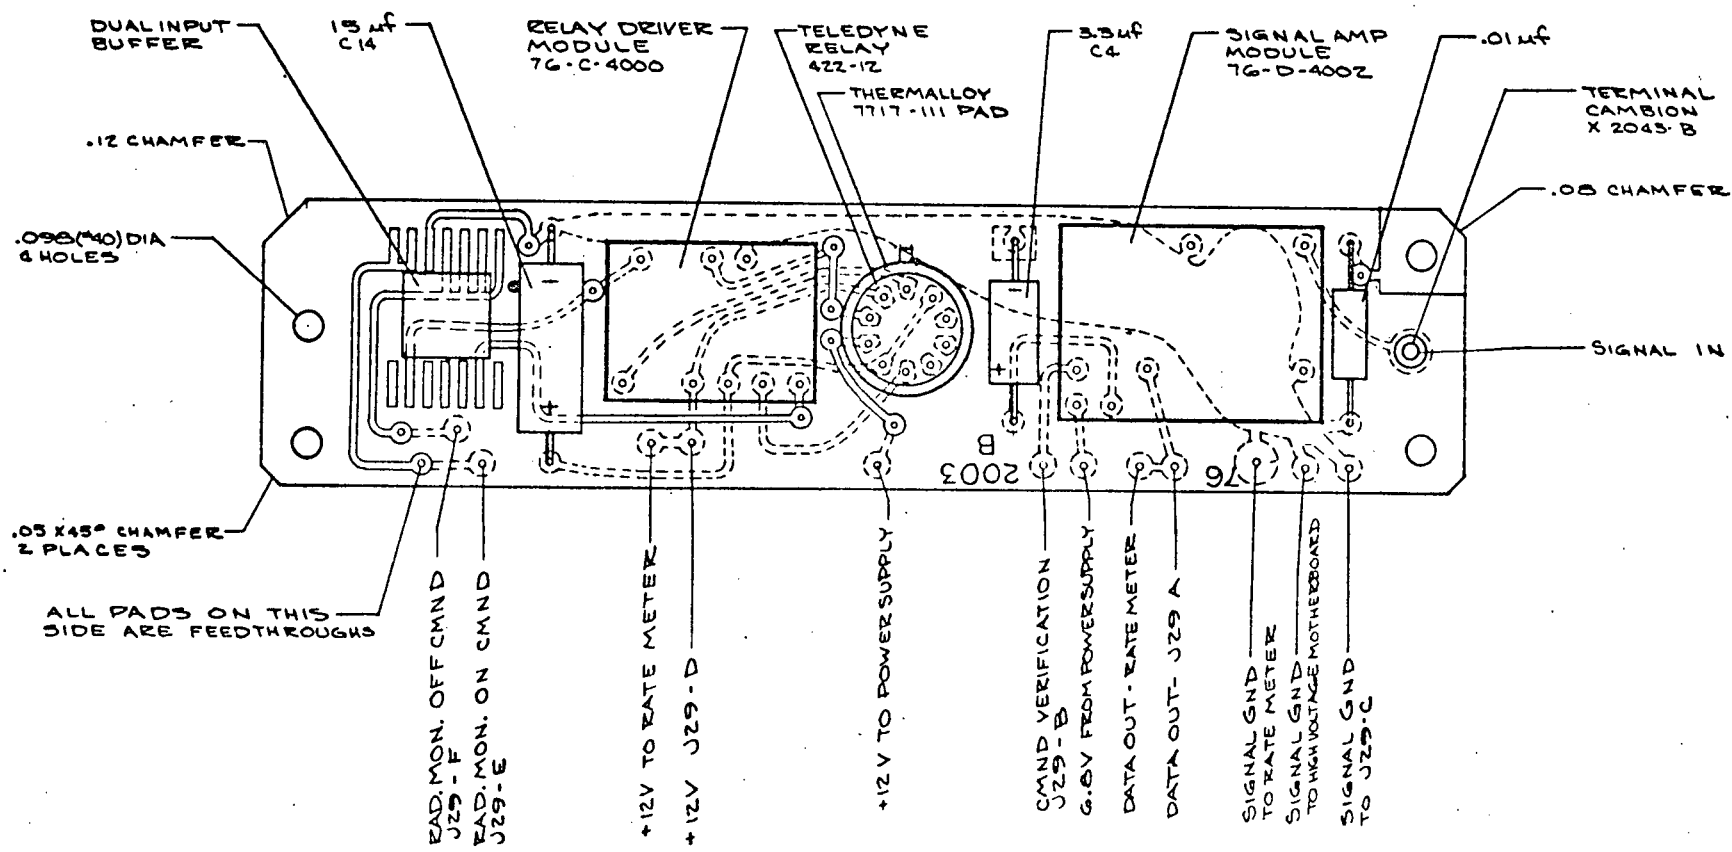 DUAL INPUT
BUFFER
15 µf
C14
RELAY DRIVER
MODULE
76-C-4000
TELEDYNE
RELAY
422-12
THERMALLOY
7717-111 PAD
3.3 µf
C4
SIGNAL AMP
MODULE
76-D-4002
.01 µf
TERMINAL
CAMBION
X 2043-B
.12 CHAMFER
.08 CHAMFER
.098 (#40) DIA
4 HOLES
SIGNAL IN
B
2003
76
.05 X 45° CHAMFER
2 PLACES
ALL PADS ON THIS
SIDE ARE FEEDTHROUGHS
RAD. MON. OFF CMND
J29-F
RAD. MON. ON CMND
J29-E
+12V TO RATE METER
+12V J29-D
+12V TO POWER SUPPLY
CMND VERIFICATION
J29-B
6.8V FROM POWER SUPPLY
DATA OUT - RATE METER
DATA OUT - J29 A
SIGNAL GND
TO RATE METER
SIGNAL GND
TO HIGH VOLTAGE MOTHERBOARD
SIGNAL GND
TO J29-C